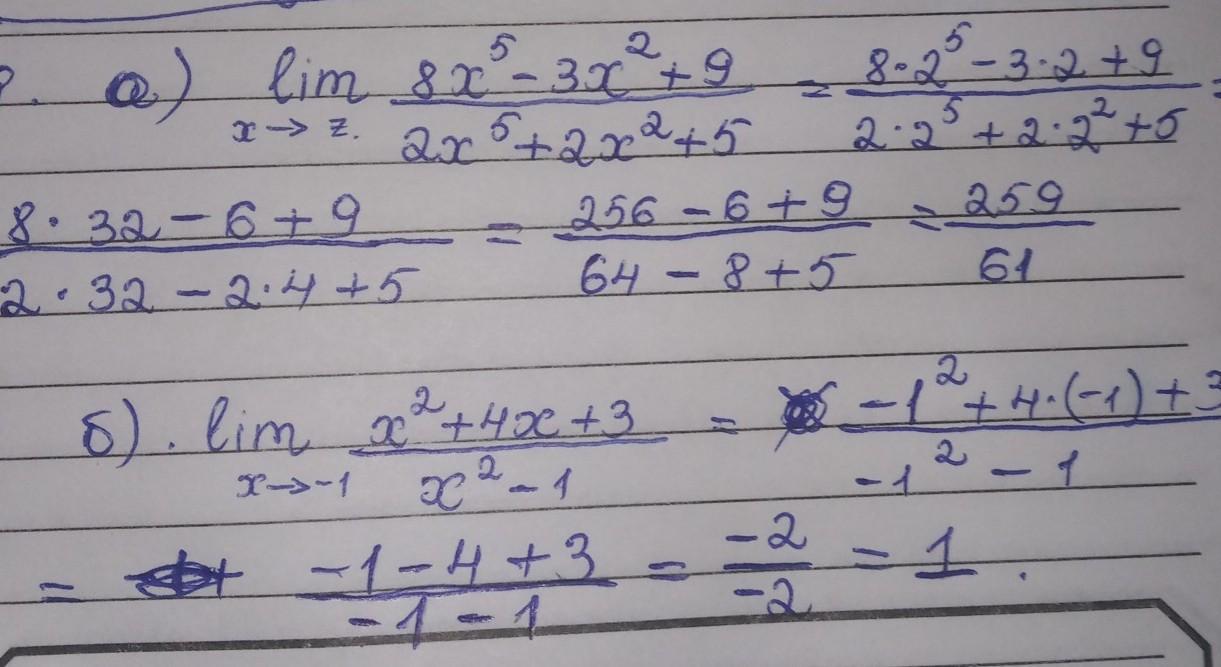 а) lim 8x⁵ - 3x² + 9 / 2x⁵ + 2x² + 5 = 8·2⁵ - 3·2 + 9 / 2·2⁵ + 2·2² + 5 =
x → 2.
8·32 - 6 + 9 / 2·32 - 2·4 + 5 = 256 - 6 + 9 / 64 - 8 + 5 = 259 / 61
б). lim x² + 4x + 3 / x² - 1 = -1² + 4·(-1) + 3 / -1² - 1
x → -1
= -1 - 4 + 3 / -1 - 1 = -2 / -2 = 1.